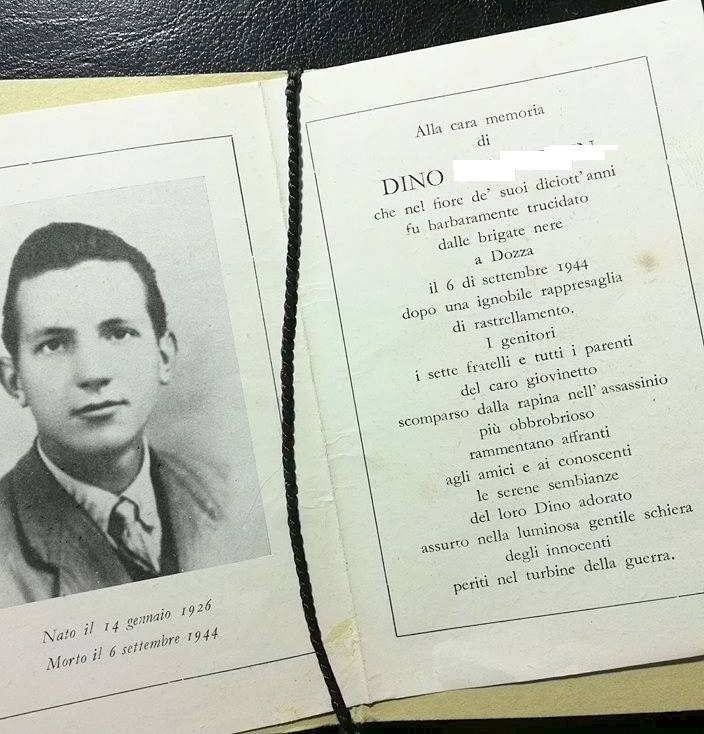 Nato il 14 gennaio 1926
Morto il 6 settembre 1944
Alla cara memoria
di
DINO
che nel fiore de' suoi diciott' anni
fu barbaramente trucidato
dalle brigate nere
a Dozza
il 6 di settembre 1944
dopo una ignobile rappresaglia
di rastrellamento.
I genitori
i sette fratelli e tutti i parenti
del caro giovinetto
scomparso dalla rapina nell' assassinio
più obbrobrioso
rammentano affranti
agli amici e ai conoscenti
le serene sembianze
del loro Dino adorato
assurto nella luminosa gentile schiera
degli innocenti
periti nel turbine della guerra.